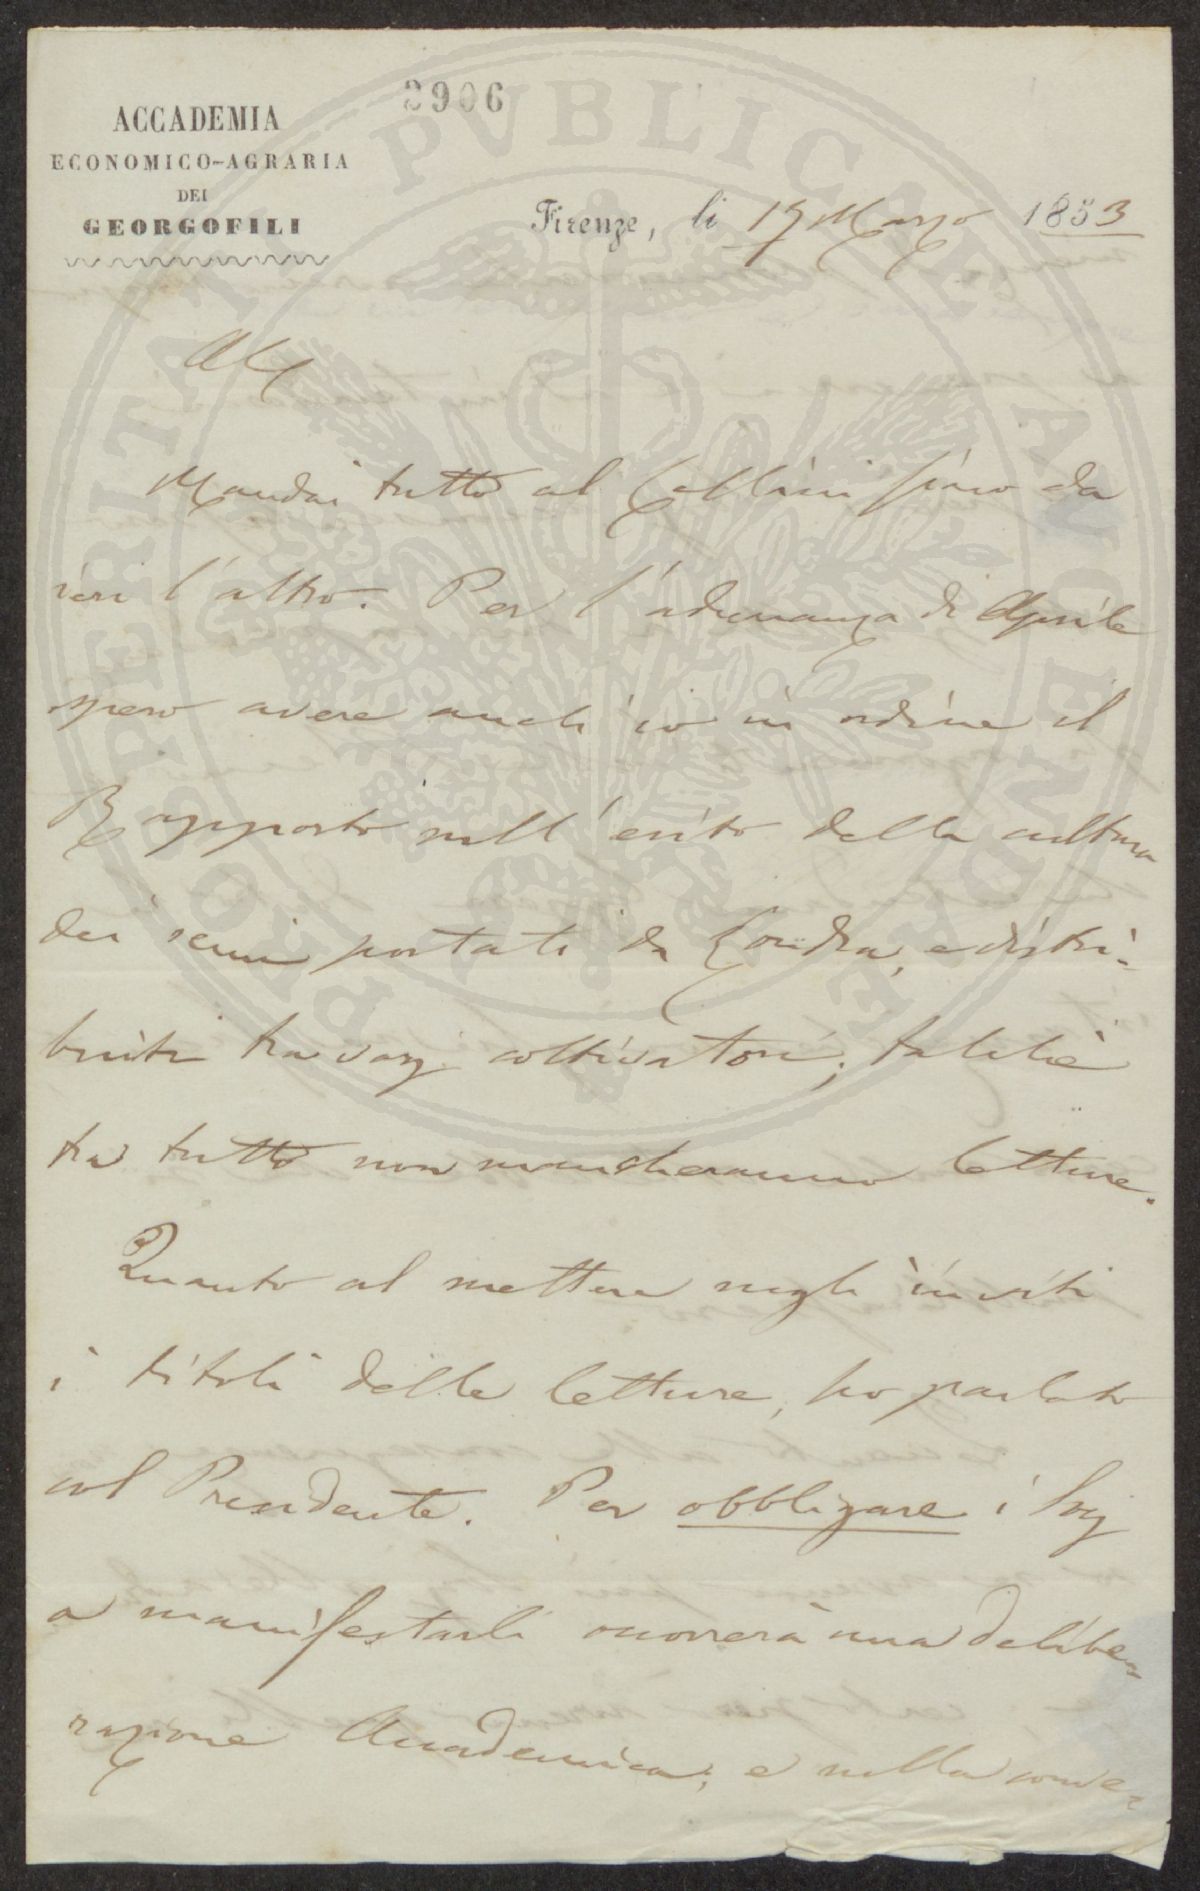 2906
ACCADEMIA
ECONOMICO-AGRARIA
DEI
GEORGOFILI
Firenze, li 17 Marzo 1853
AC
Mandai tutto al Cellini fino da
ieri l'altro. Per l'adunanza di Aprile
spero avere anch'io in ordine il
Rapporto sull'esito della cultura
dei semi portati da Londra, e distri-
buiti tra varj coltivatori; talchè
tra tutto non mancheranno letture.
Quanto al mettere negli inviti
i titoli delle letture, ho parlato
col Presidente. Per obbligare i Soci
a manifestarli occorrerà una delibe-
razione Accademica; e nella conver-
PROSPERITATI PVBLICAE AVGENDAE